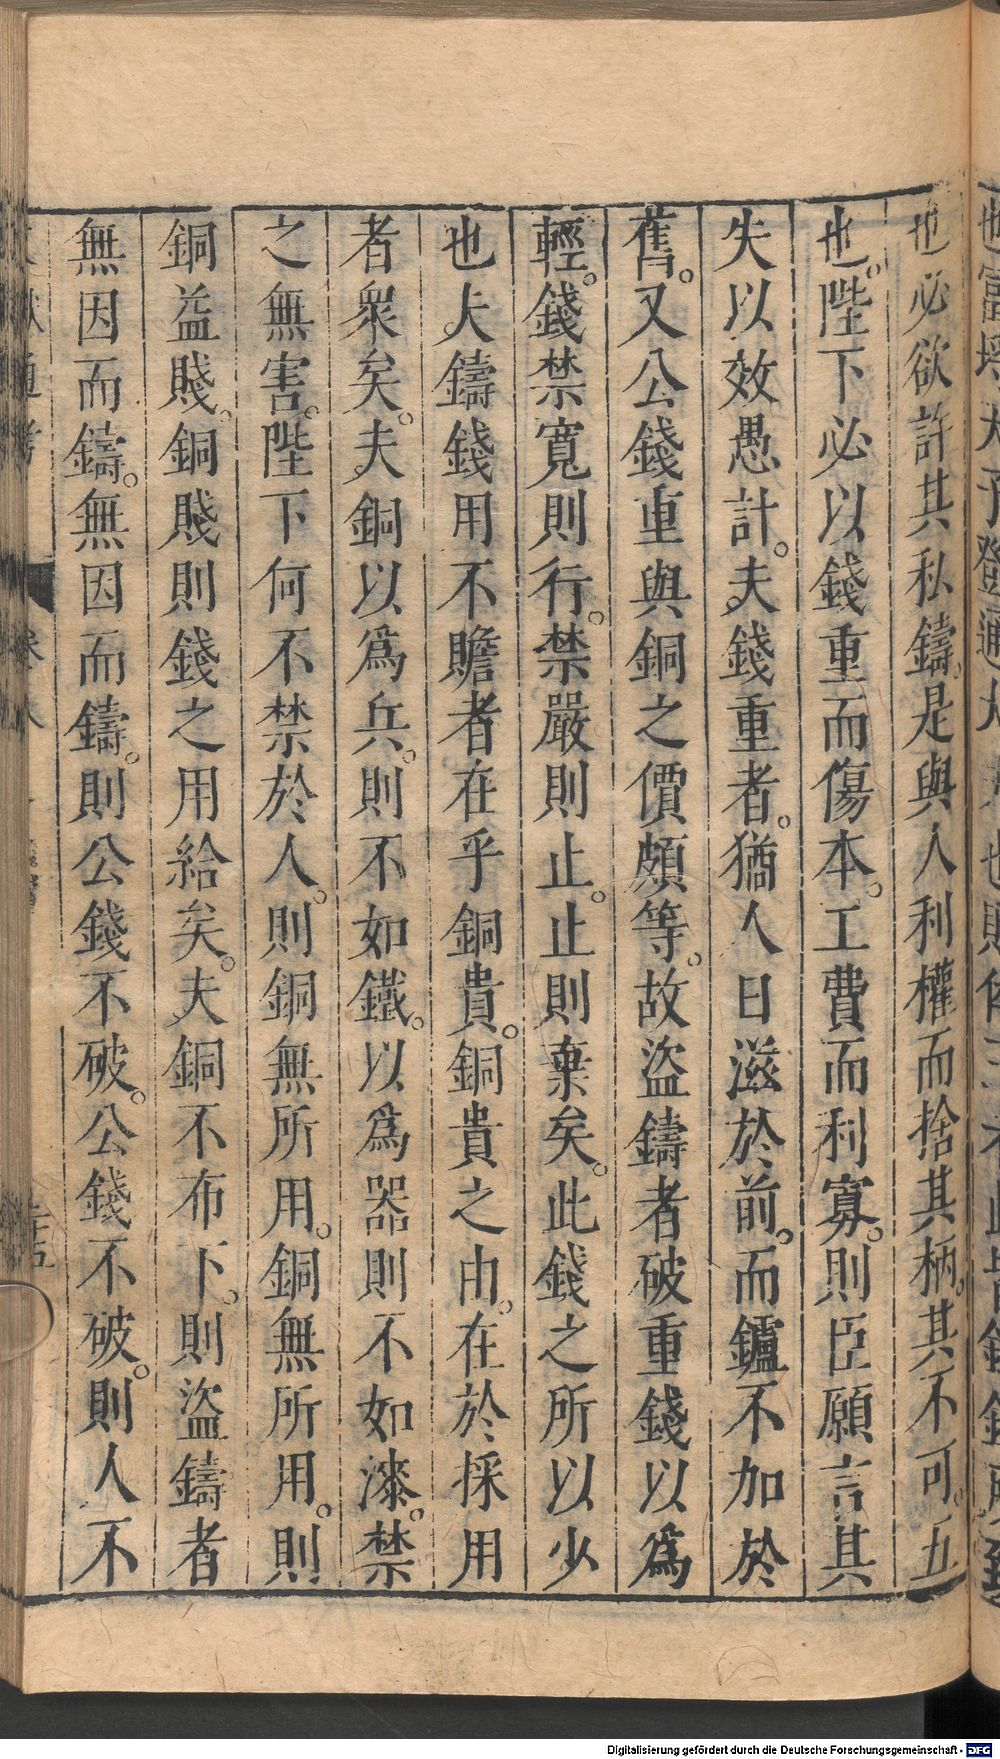 也必欲許其私鑄。是與人利權而捨其柄。其不可。五
也。陛下必以錢重而傷本。工費而利寡。則臣願言其
失以效愚計。夫錢重者。猶人日滋於前。而鑪不加於
舊。又公錢重與銅之價頗等。故盜鑄者破重錢以爲
輕。錢禁寬則行。禁嚴則止。止則棄矣。此錢之所以少
也夫鑄錢用不贍者在乎銅貴。銅貴之由。在於採用
者衆矣。夫銅以爲兵。則不如鐵。以爲器則不如漆。禁
之無害。陛下何不禁於人。則銅無所用。銅無所用。則
銅益賤。銅賤則錢之用給矣。夫銅不布下。則盜鑄者
無因而鑄。無因而鑄。則公錢不破。公錢不破。則人不
Digitalisierung gefördert durch die Deutsche Forschungsgemeinschaft - DFG